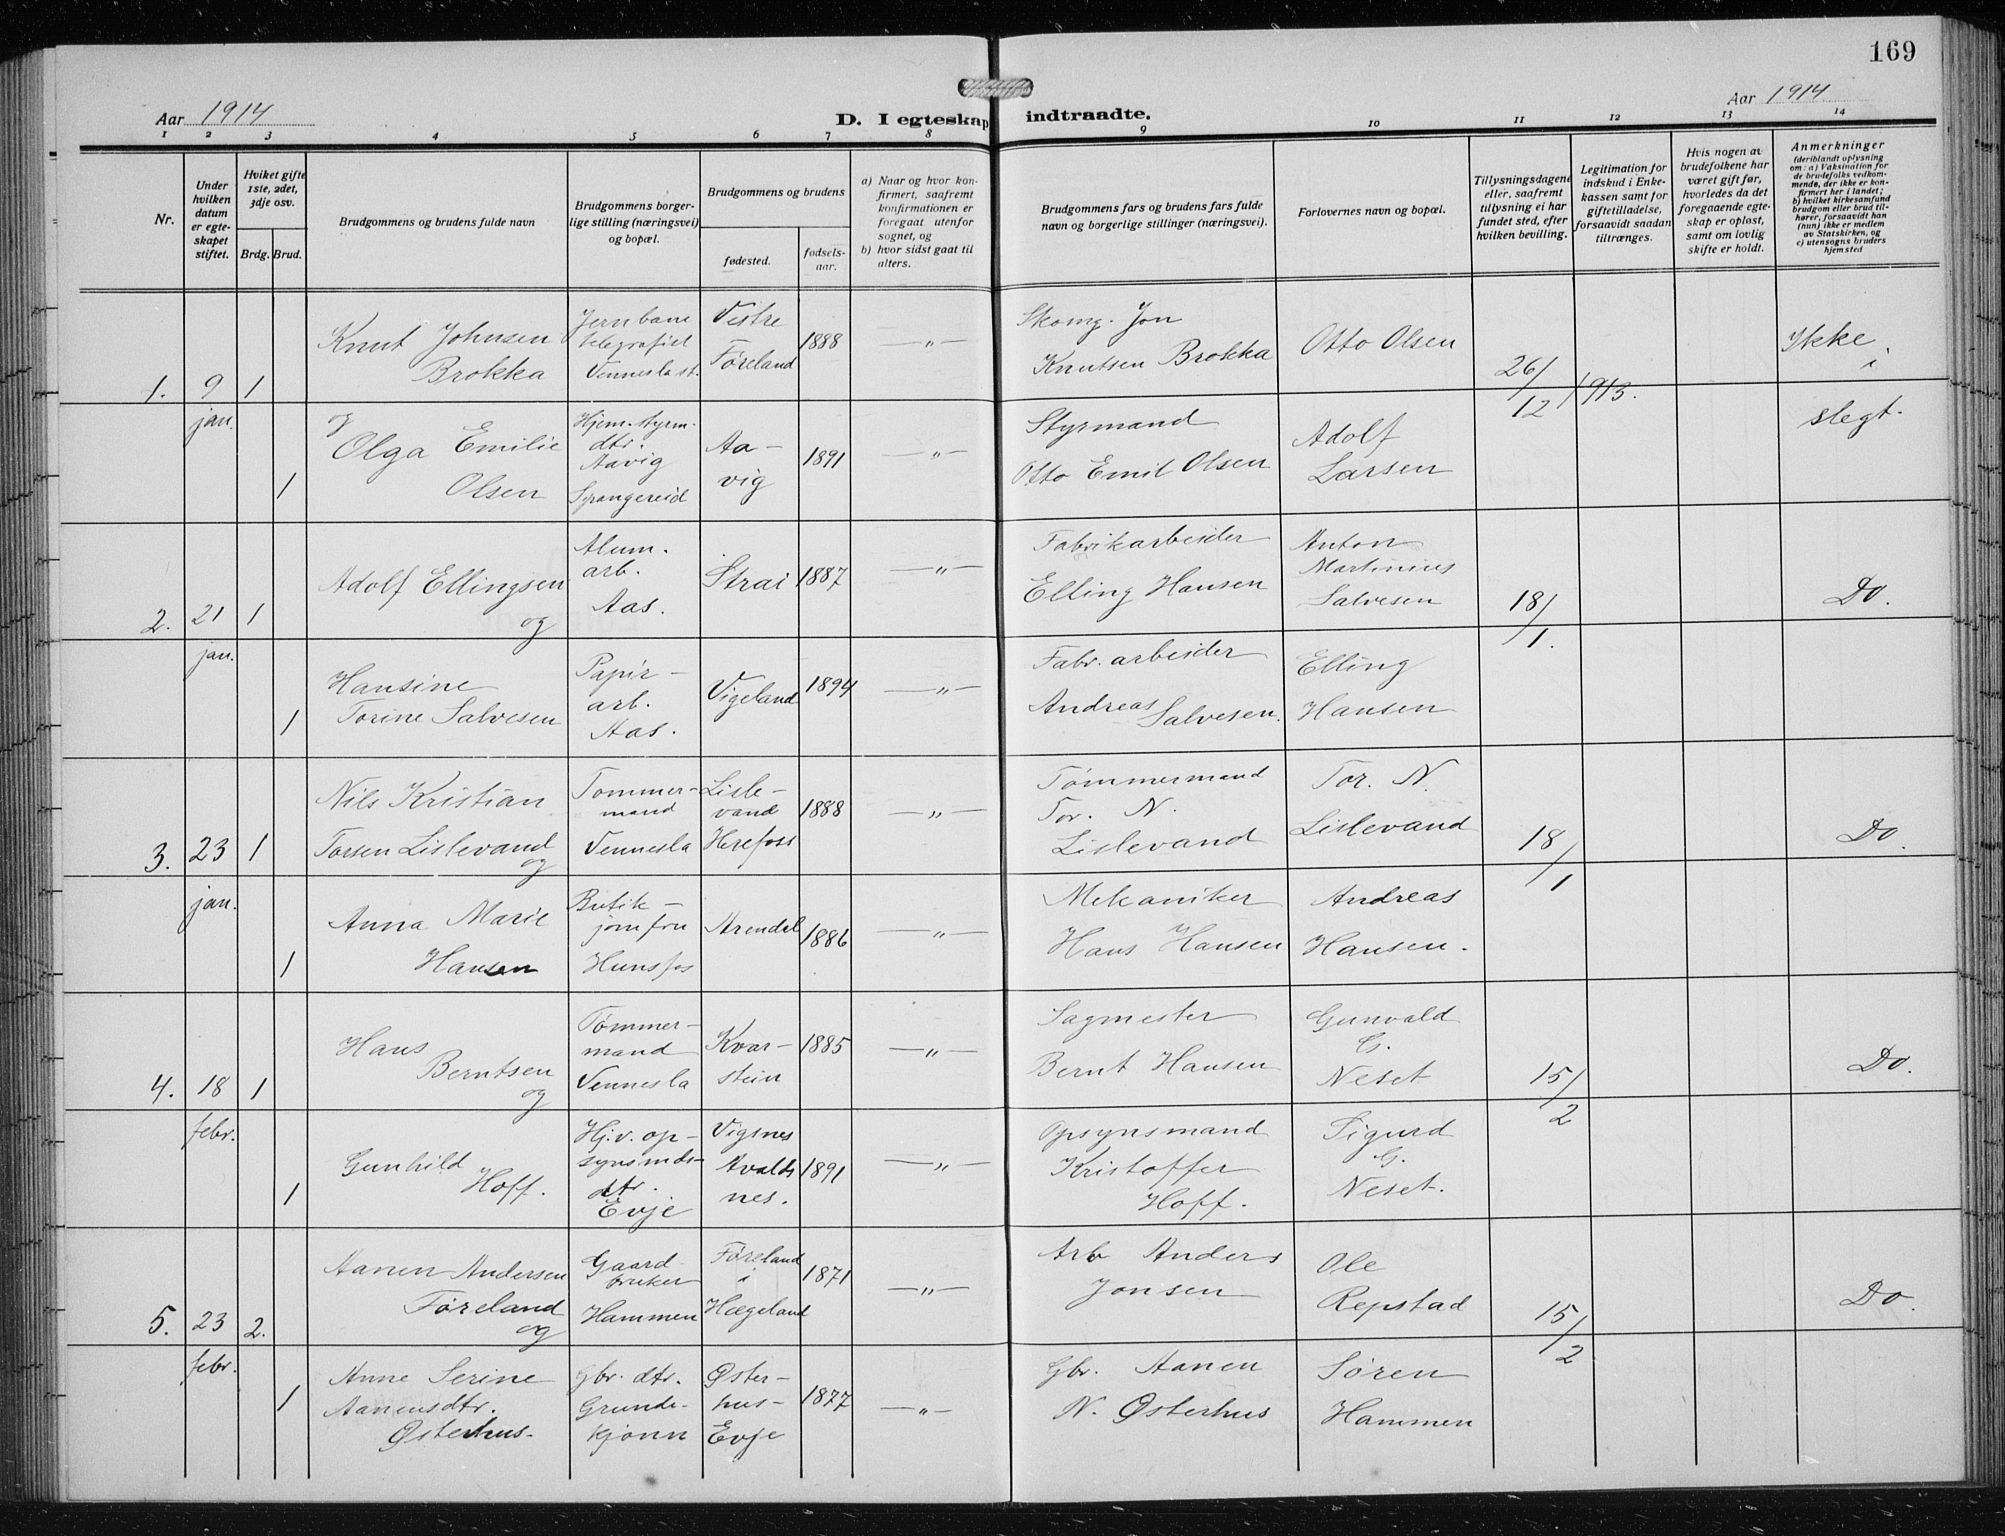 169
Aar 1914
D. I egteskap indtraadte.
Aar 1914
1 2 3 4 5 6 7 8 9 10 11 12 13 14
Nr.
Under hvilken datum er egteskapet stiftet.
Hviket gifte 1ste, 2det, 3dje osv.
Brdg. Brud.
Brudgommens og brudens fulde navn
Brudgommens borgerlige stilling (næringsvei) og bopæl.
Brudgommens og brudens
fødested.
fødselsaar.
a) Naar og hvor konfirmert, saafremt konfirmationen er foregaat utenfor sognet, og
b) hvor sidst gaat til alters.
Brudgommens fars og brudens fars fulde navn og borgerlige stillinger (næringsvei).
Forlovernes navn og bopæl.
Tillysningsdagene eller, saafremt tillysning ei har fundet sted, efter hvilken bevilling.
Legitimation for indskud i Enkekassen samt for giftetilladelse, forsaavidt saadan tiltrænges.
Hvis nogen av brudefolkene har været gift før, hvorledes da det foregaaende egteskap er opløst, samt om lovlig skifte er holdt.
Anmerkninger
(deriblandt oplysning om: a) Vaksination for de brudefolks vedkommende, der ikke er konfirmert her i landet; b) hvilket kirkesamfund brudgom eller brud tilhører, forsaavidt han (hun) ikke er medlem av Statskirken, og c) utensogns bruders hjemsted
1. 9 jan. 1
Knut Johnsen
Brokka
og
Jernbane
telegrafist
Vennesla st.
Vestre
Føreland
1888
—„—
Skomg. Jon
Knutsen Brokka
Otto Olsen
26/12 1913.
Ikke
i
slegt.
1
Olga Emilie
Olsen
Hjem. styrm.
dtr.
Aavig
Spangereid
Aa-
vig
1891
—„—
Styrmand
Otto Emil Olsen
Adolf
Larsen
2. 21 jan. 1
Adolf Ellingsen
og
Alum.
arb.
Aas.
Strai
1887
—„—
Fabrikarbeider
Elling Hansen
Anton
Martinius
Salvesen
18/1.
Do.
1
Hansine
Torine Salvesen
Papir-
arb.
Aas.
Vigeland
1894
—„—
Fabr. arbeider
Andreas Salvesen.
Elling
Hansen
3. 23 jan. 1
Nils Kristian
Torsen Lislevand
og
Tømmer-
mand
Vennesla
Lisle-
vand
Herefoss
1888
—„—
Tømmermand
Tor. N.
Lislevand
Tor. N.
Lislevand
18/1
Do.
1
Anna Marie
Hansen
Butik-
jomfru
Hunsfos
Arendal
1886
—„—
Mekaniker
Hans Hansen
Andreas
Hansen.
4. 18 febr. 1
Hans
Berntsen
og
Tømmer-
mand
Vennesla
Kvar-
stein
1885
—„—
Sagmester
Bernt Hansen
Gunvald
G.
Neset
15/2
Do.
1
Gunhild
Hoff.
Hj.v. op-
synsmds-
dtr.
Evje
Vigsnes
Avalds
nes.
1891
—„—
Opsynsmand
Kristoffer
Hoff.
Sigurd
G.
Neset.
5. 23 febr. 2.
Aanen Andersen
Føreland
og
Gaard-
bruker
Hammen
Føreland
i
Hægeland
1871
—„—
Arb Anders
Jonsen
Ole
Repstad
15/2
Do.
1
Anne Serine
Aanensdtr.
Østerhus.
Gbr. dtr.
Grunde-
kjønn
Øster-
hus-
Evje
1877
—„—
Gbr. Aanen
N. Østerhus
Søren
Hammen